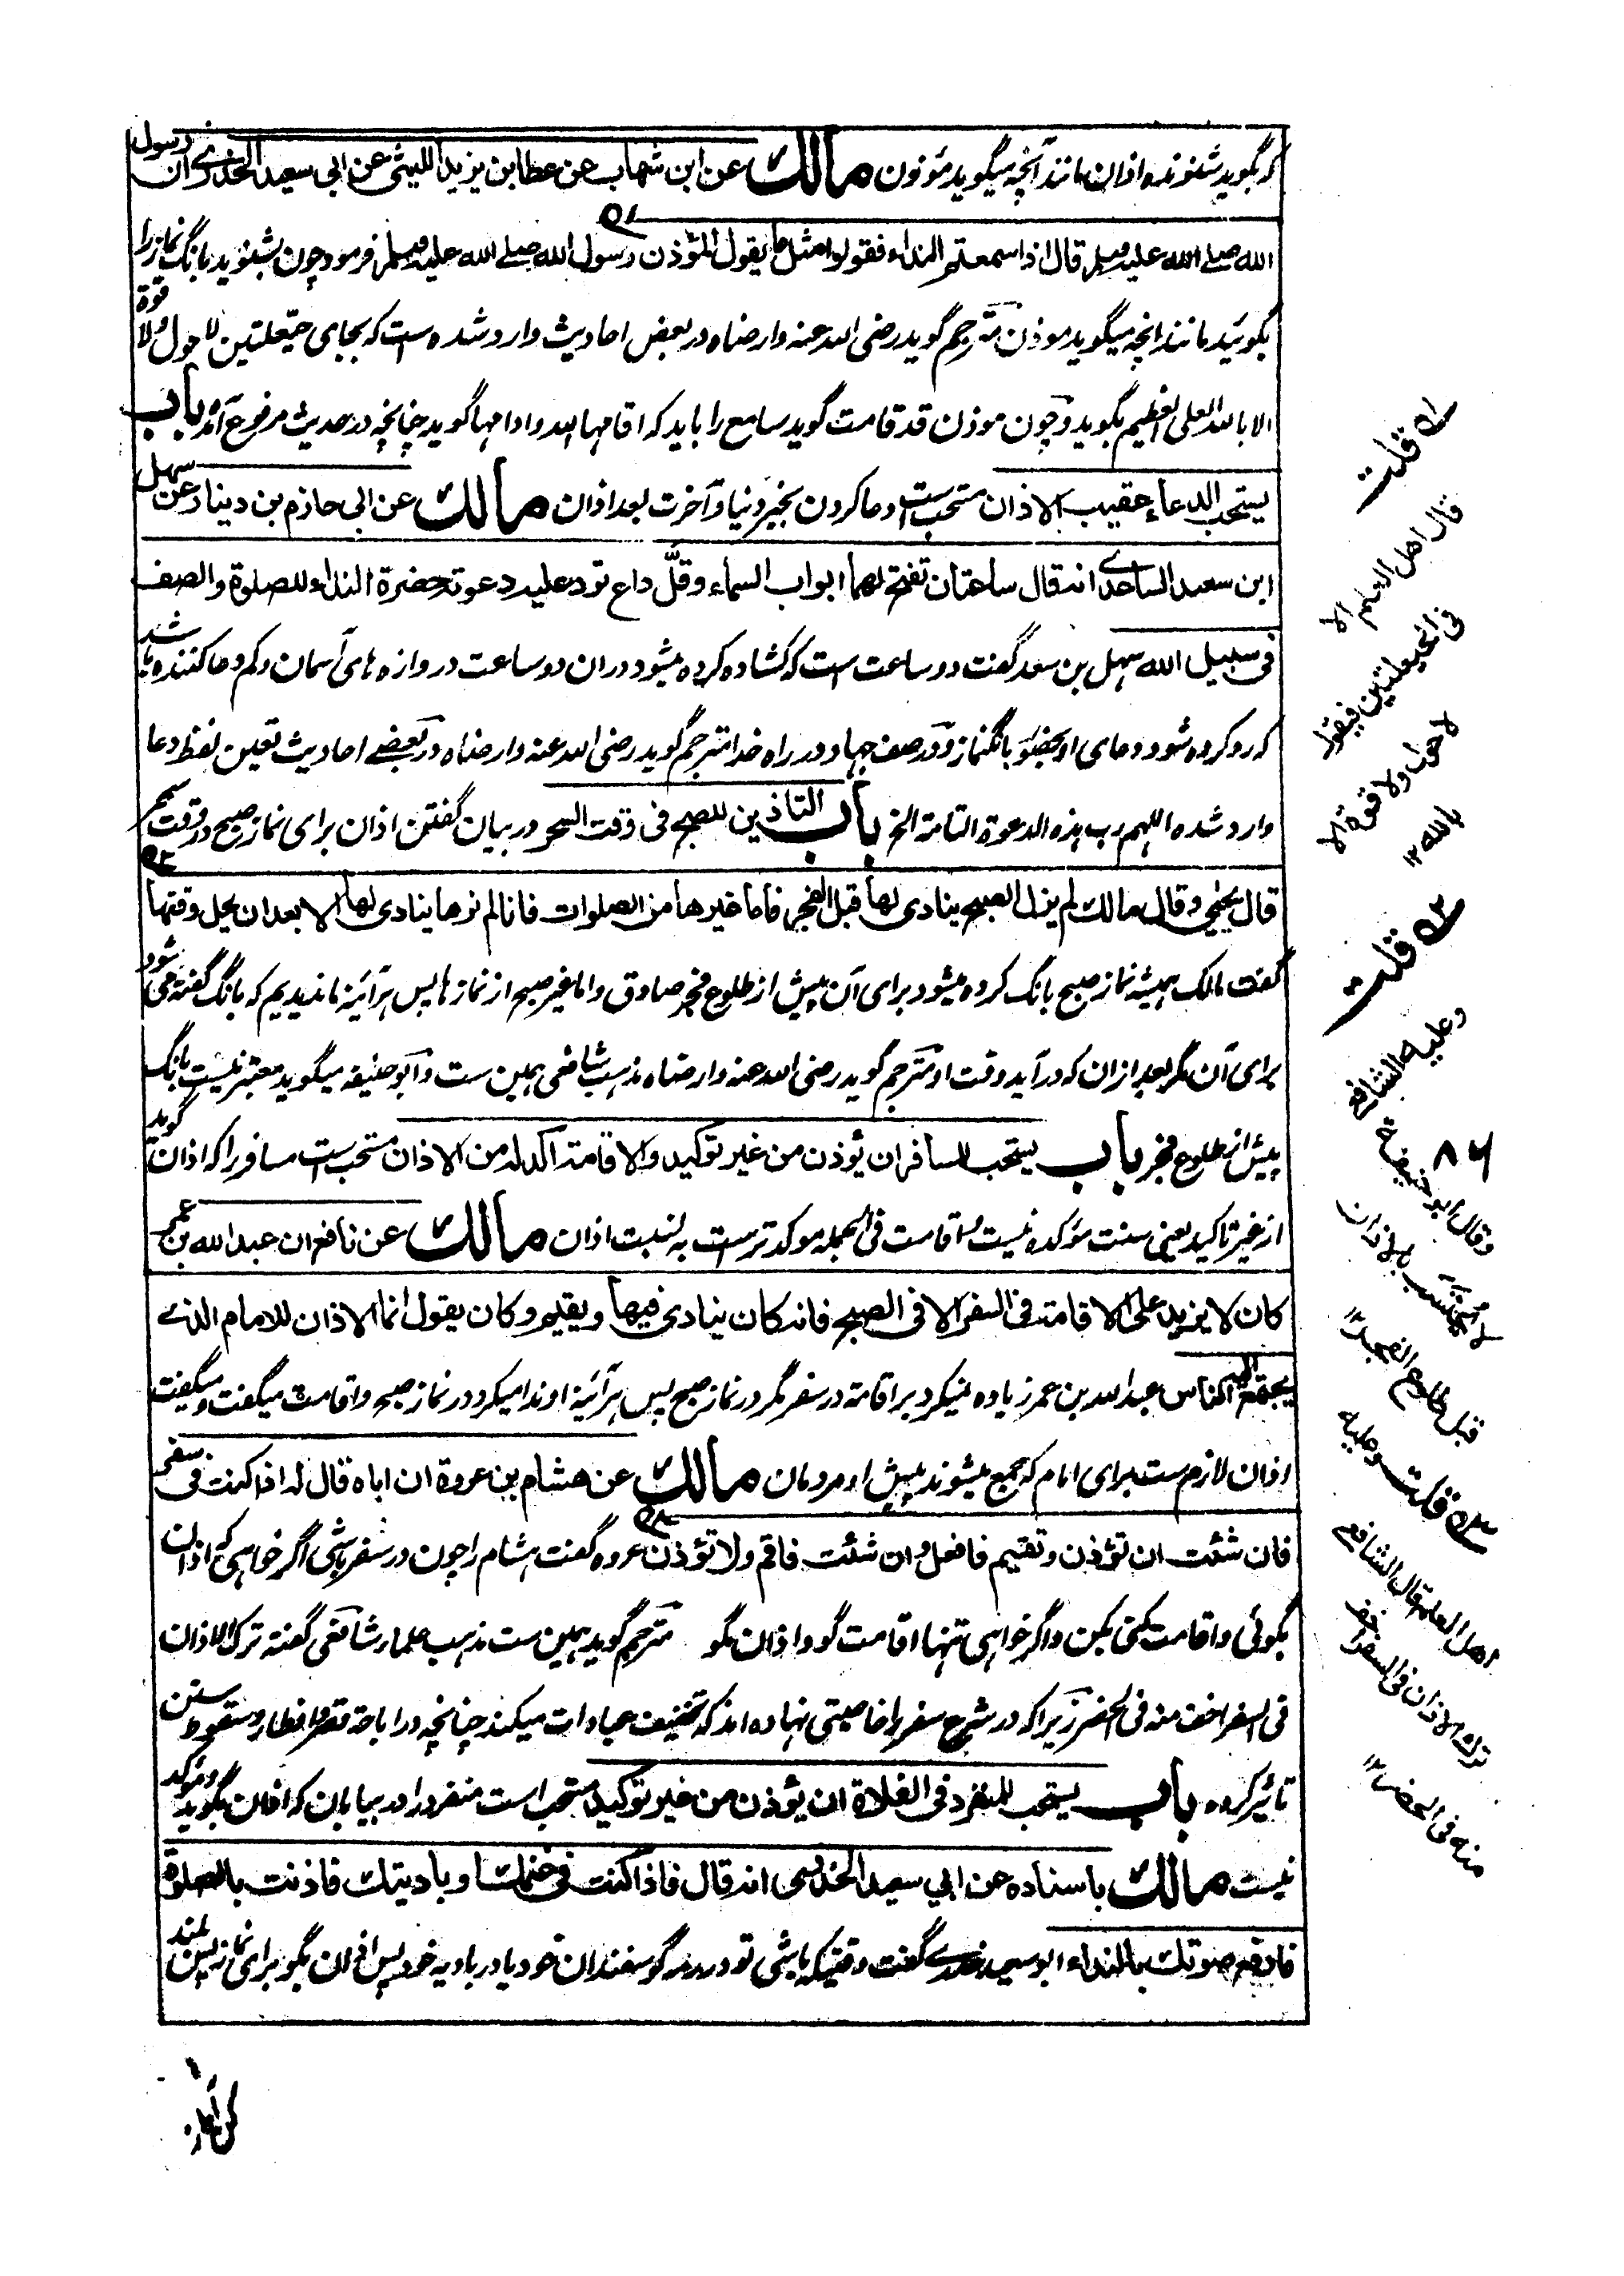 که بگوید شنونده اذان مانند آنچه میگوید مؤذن مالك عن ابن شهاب عن عطا بن یزید اللیثی عن ابی سعید الخدری ان رسول
الله صلے الله علیه وسلم قال اذا سمعتم النداء فقولوا مثل ما یقول المؤذن رسول الله صلے الله علیه وسلم فرمود چون بشنوید بانگ نماز را
بگوئید مانند انچه میگوید موذن مترجم گوید رضی الله عنه وارضاه در بعض احادیث وارد شده است که بجای حیعلتین لا حول ولا قوة
الا بالله العلی العظیم بگوید و چون موذن قد قامت گوید سامع را باید که اقامها الله وادامها گوید چنانچه در حدیث مرفوع آمده باب
یستحب الدعاء عقیب الاذان مستحب ست دعا کردن بخیر دنیا و آخرت بعد اذان مالك عن ابی حازم بن دینار عن سهل
ابن سعید الساعدے انه قال ساعتان تفتح لهما ابواب السماء وقلّ داع ترد علیه دعوته حضرة النداء للصلوة والصف
فی سبیل الله سهل بن سعد گفت دو ساعت ست که کشاده کرده میشود دران دو ساعت دروازه های آسمان و کم دعا کننده باشد
که رد کرده شود دعای او بحضور بانگ نماز و در صف جهاد در راه خدا مترجم گوید رضی الله عنه وارضاه در بعضے احادیث تعین لفظ دعا
وارد شده اللهم رب هذه الدعوة التامة الخ باب التاذین للصبح فی وقت السحر در بیان گفتن اذان برای نماز صبح در وقت سحر
قال یحیی وقال مالك لم یزل الصبح ینادی لها قبل الفجر فاما غیرها من الصلوات فانا لم نرها ینادی لها الا بعد ان یحل وقتها
گفت مالک همیشه نماز صبح بانگ کرده میشود برای آن پیش از طلوع فجر صادق و اما غیر صبح از نماز ها پس هر آئینه ما ندیدیم که بانگ گفته می شود
برای آن مگر بعد ازان که در آید وقت او مترجم گوید رضی الله عنه وارضاه مذهب شافعی همین ست و ابو حنیفه میگوید معتبر نیست بانگ
پیش از طلوع فجر باب یستحب للمسافر ان یؤذن من غیر توکید والاقامة آکد له من الاذان مستحب ست مسافر را که اذان گوید
از غیر تاکید یعنی سنت مؤکده نیست و اقامت فی الجمله موکد تر ست به نسبت اذان مالك عن نافع ان عبد الله بن عمر
کان لا یزید علی الاقامة فی السفر الا فی الصبح فانه کان ینادی فیها ویقیم وکان یقول انما الاذان للامام الذے
یجتمع الیه الناس عبد الله بن عمر زیاده نمیکرد بر اقامة در سفر مگر در نماز صبح پس هر آئینه او ندا میکرد در نماز صبح و اقامت میگفت و میگفت
اذان لازم ست برای امام که جمع میشوند پیش او مردمان مالك عن هشام بن عروة ان اباه قال له اذا کنت فی سفر
فان شئت ان تؤذن وتقیم فافعل وان شئت فاقم ولا تؤذن عروه گفت هشام را چون در سفر باشی اگر خواهی که اذان
بگوئی و اقامت کنی بکن و اگر خواهی تنها اقامت گو و اذان مگو مترجم گوید همین ست مذهب علما و شافعی گفته ترک الاذان
فی السفر اخف منه فی الحضر زیرا که در شرع سفر را خاصیتی نهاده اند که تخفیف عبادات میکند چنانچه در اباحة قصر و افطار و سقوط سنن
تاثیر کرده باب یستحب للمنفرد فی الفلاة ان یؤذن من غیر توکید مستحب است منفرد را در بیابان که اذان بگوید و مؤکد
نیست مالك باسناده عن ابی سعید الخدری انه قال فاذا کنت فی غنمك او بادیتك فاذنت بالصلوة
فارفع صوتك بالنداء ابو سعید خدرے گفت وقتیکه باشی تو در رمه گوسفندان خود یا در بادیه خود پس اذان بگو برای نماز پس بلند
ف۱ قلت
قال اهل العلم الا
فی الحیعلتین فیقول
لا حول ولا قوة الا
بالله ۱۲
ف۲ قلت
وعلیه الشافعے
۸۶
وقال ابو حنیفة
لا یحتسب بالاذان
قبل طلوع الفجر ۱۲
ف۳ قلت وعلیه
اهل العلم قال الشافعے
ترك الاذان فی السفر اخف
منه فی الحضر ۱۲